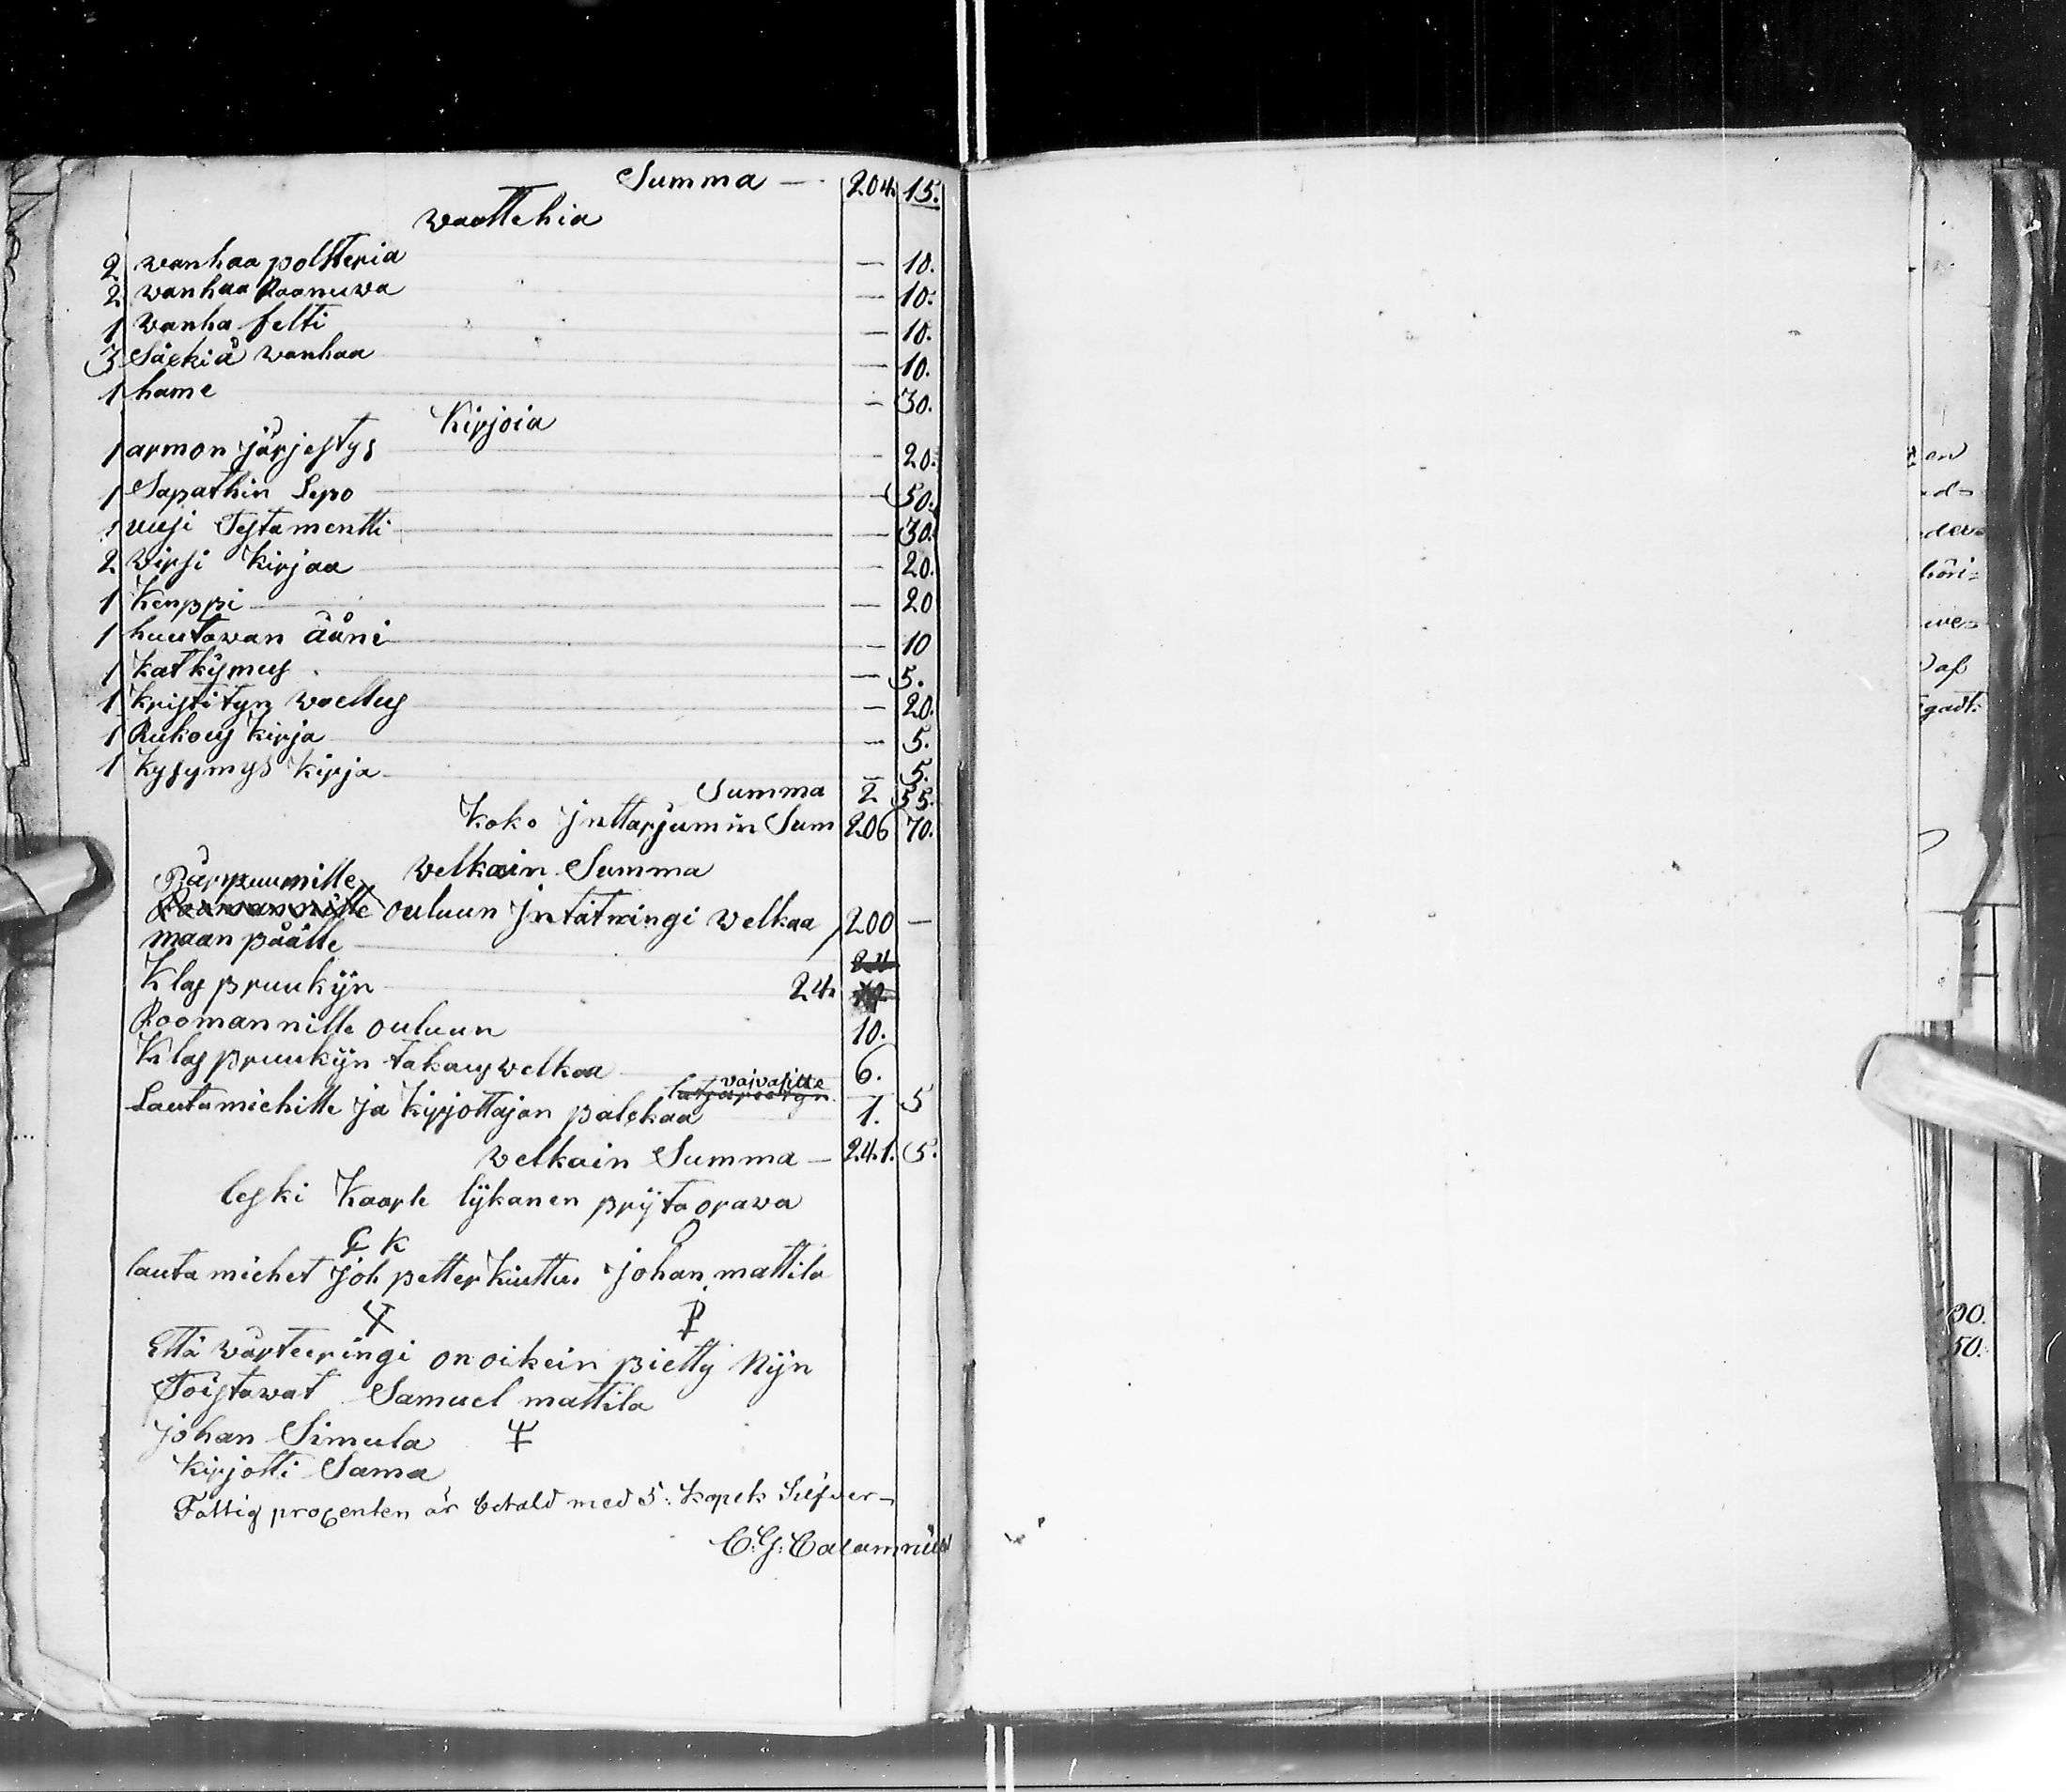 Summa — 204. 15.
waattehia
2 wanhaa polsteria — 10.
2 wanhaa Raanuwa — 10.
1 wanha felti — 10.
3 Säckiä wanhaa — 10.
1 hame — 30.
Kirjoia
1 armon järjestys — 20.
1 Sapathin Lepo — 50.
1 uusi Testamentti — 30.
2 Wirsi Kirjaa — 20.
1 Kenppi — 20
1 huutawan ääni — 10
1 katkijmus — 5.
1 kristityn waellus — 20.
1 Rukous kirja — 5.
1 kysymys kirja — 5.
Summa 2 55.
Koko jnttarjumin Sum 206 70.
Welkain Summa
Pärpuumille
ouluun jntätningi welkaa 200 —
maan päälle 24
Klas pruukijn 24.
Roomannille ouluun 10.
Klas pruukijn takaus welkaa 6.
vaivasille
Lautamiehille ja kirjottajan palckaa 1. 5
welkain Summa — 241. 5.
leski Kaarle lijkanen prijta orawa
C K
lauta miehet joh petter Kiuttu johan mattila
Että wärteeringi on oikein pietty Nijn
Toistawat Samuel mattila
johan Simula
kirjotti Sama
Fattig procenten är betald med 5: kopek Silfver —
C. G. Calamnius
en
ad=
der=
höri=
we=
af
gadt.
00.
50.